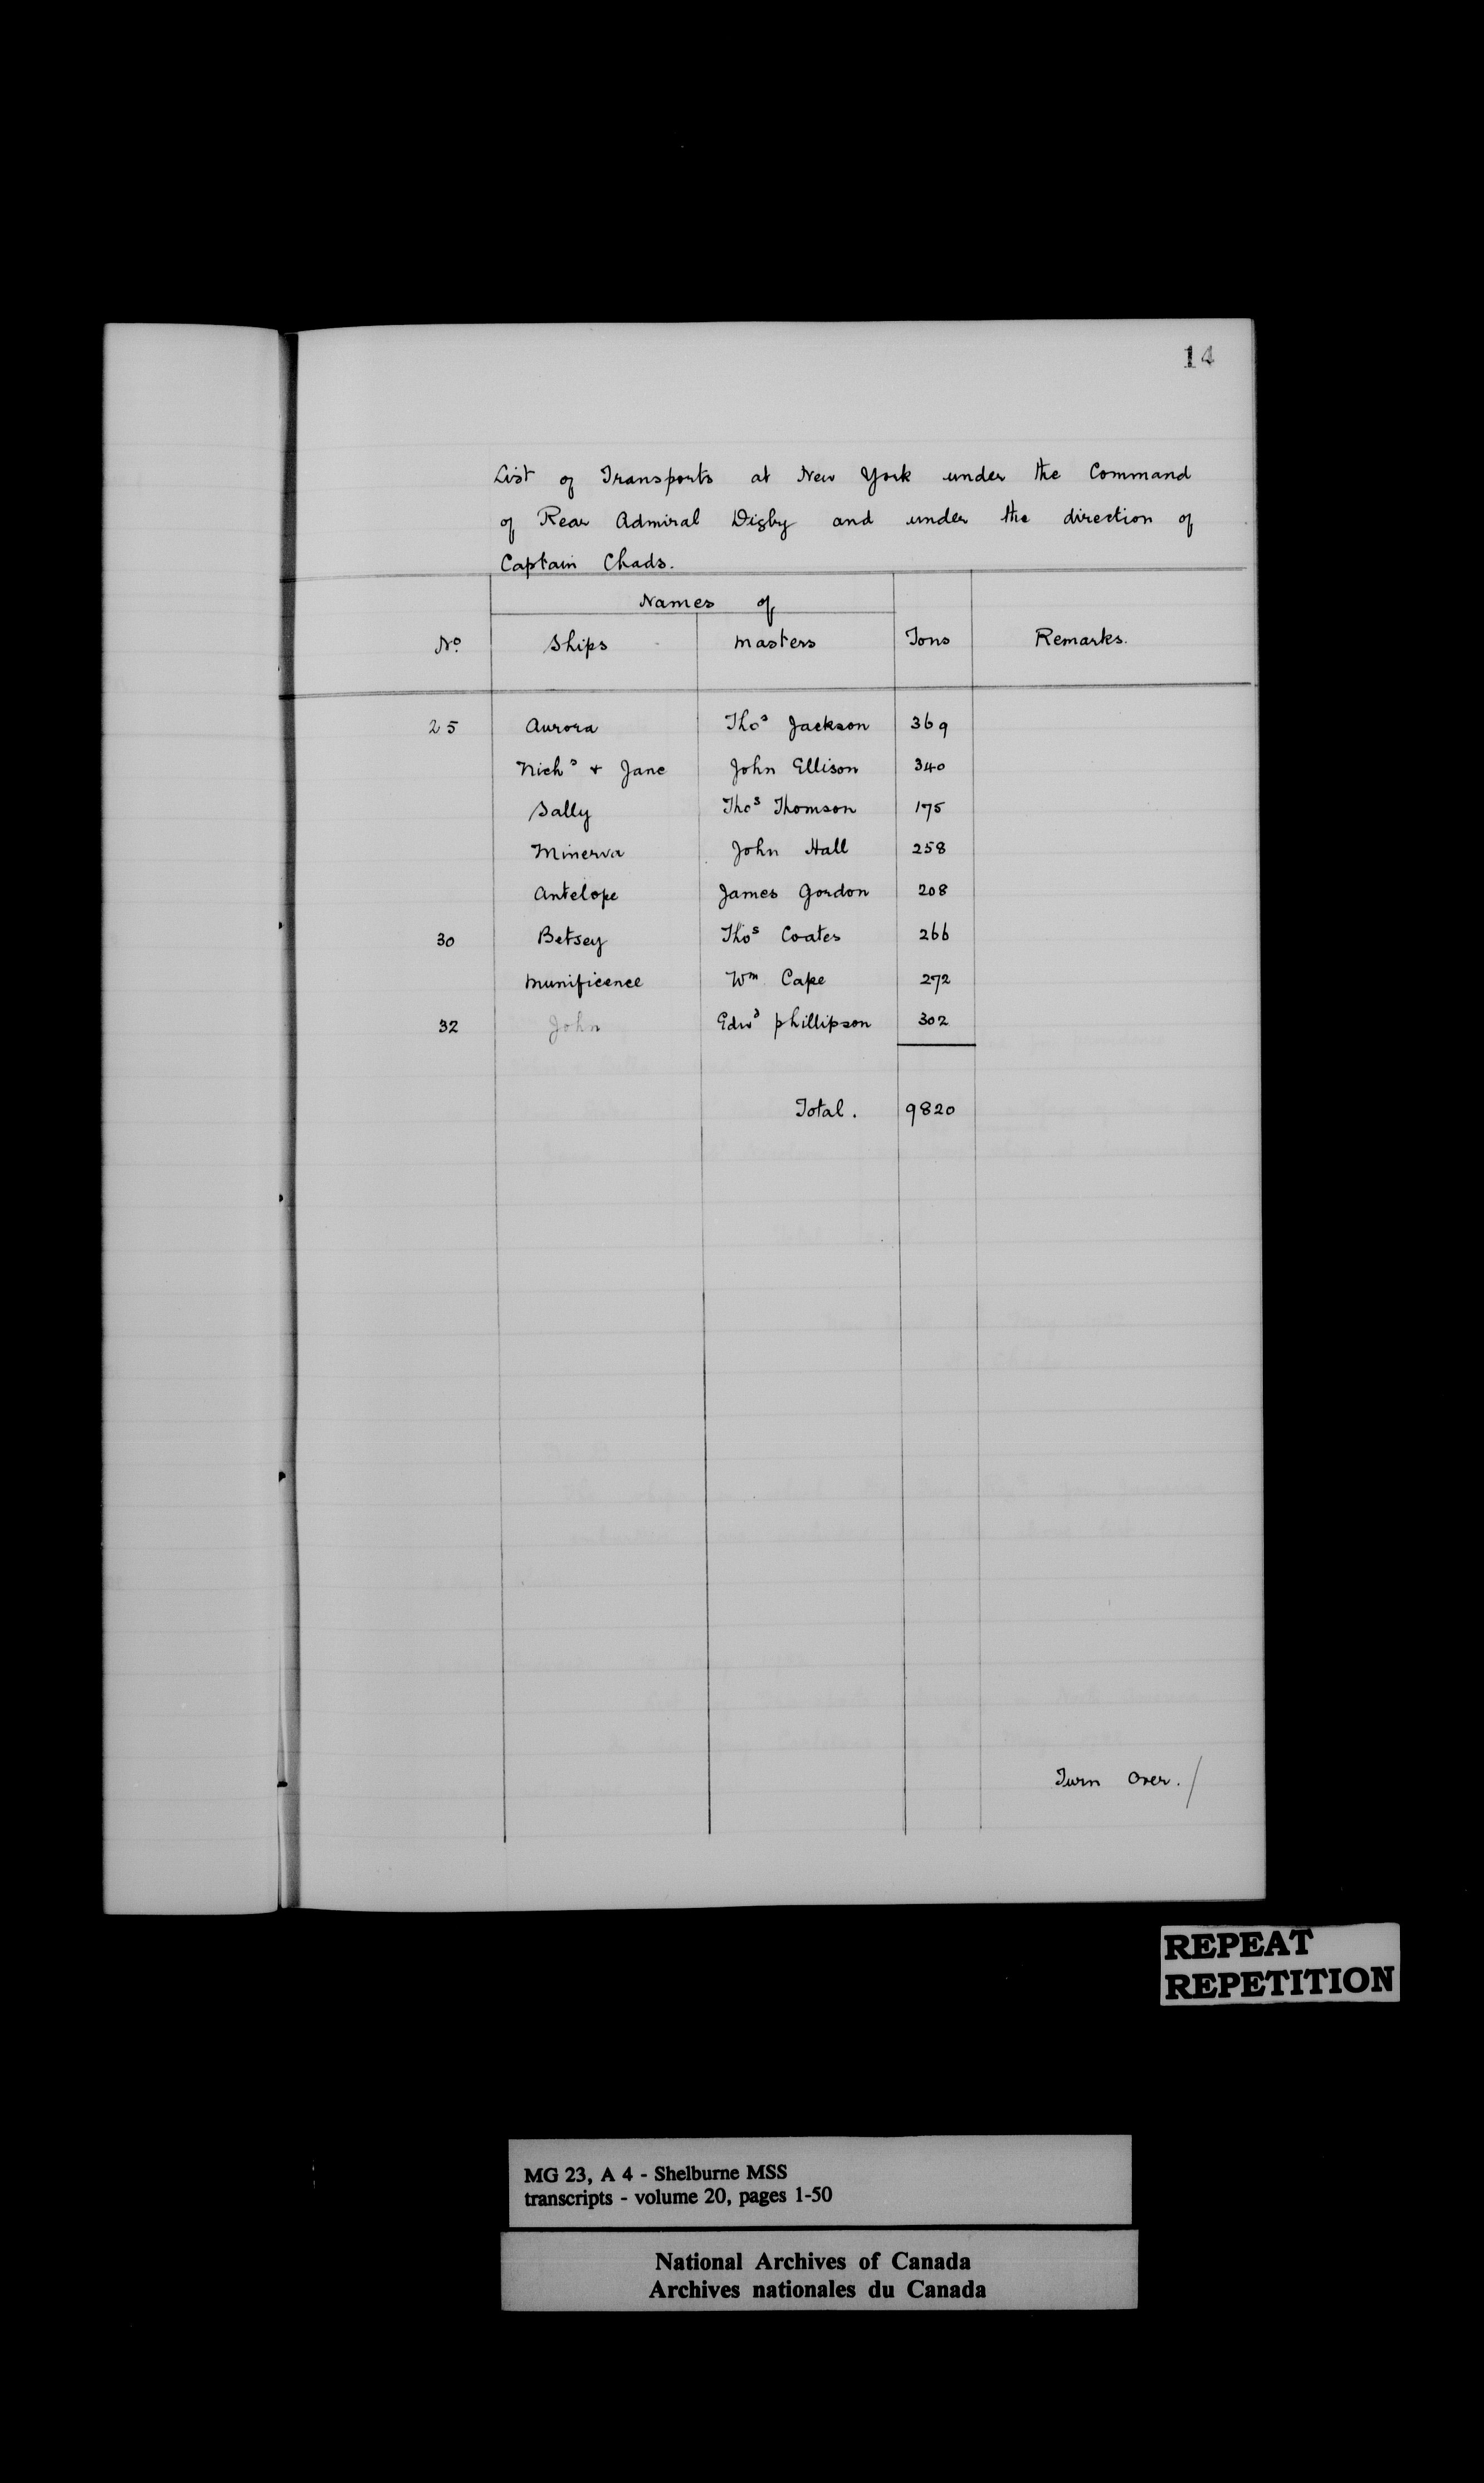 14
List of Transports at New York under the Command
of Rear Admiral Digby and under the direction of
Captain Chads.
Names of
No. Ships Masters Tons Remarks.
25 Aurora Thos Jackson 369
Nichs + Jane John Ellison 340
Sally Thos Thomson 175
Minerva John Hall 258
Antelope James Gordon 208
30 Betsey Thos Coates 266
Munificence Wm Cape 272
32 John Edwd Phillipson 302
Total. 9820
Turn Over./
REPEAT
REPETITION
MG 23, A 4 - Shelburne MSS
transcripts - volume 20, pages 1-50
National Archives of Canada
Archives nationales du Canada